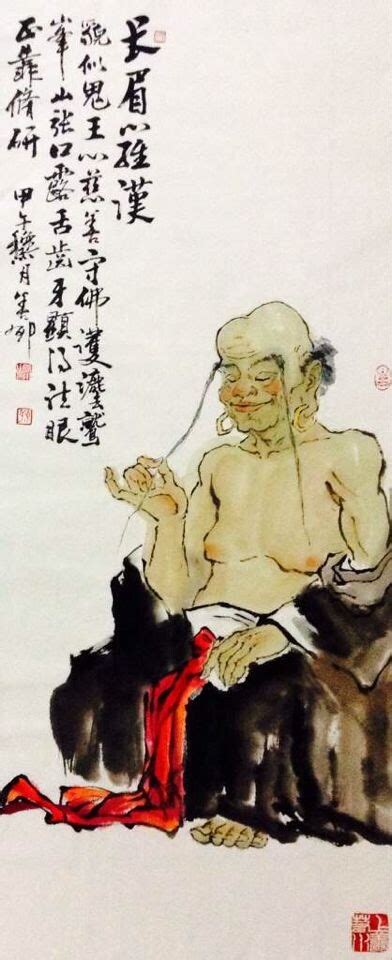 长眉羅漢
貌似鬼王心慈善守佛護灋鷲
峯山張口露舌齒牙顯得法眼
正靠脩研 甲午月